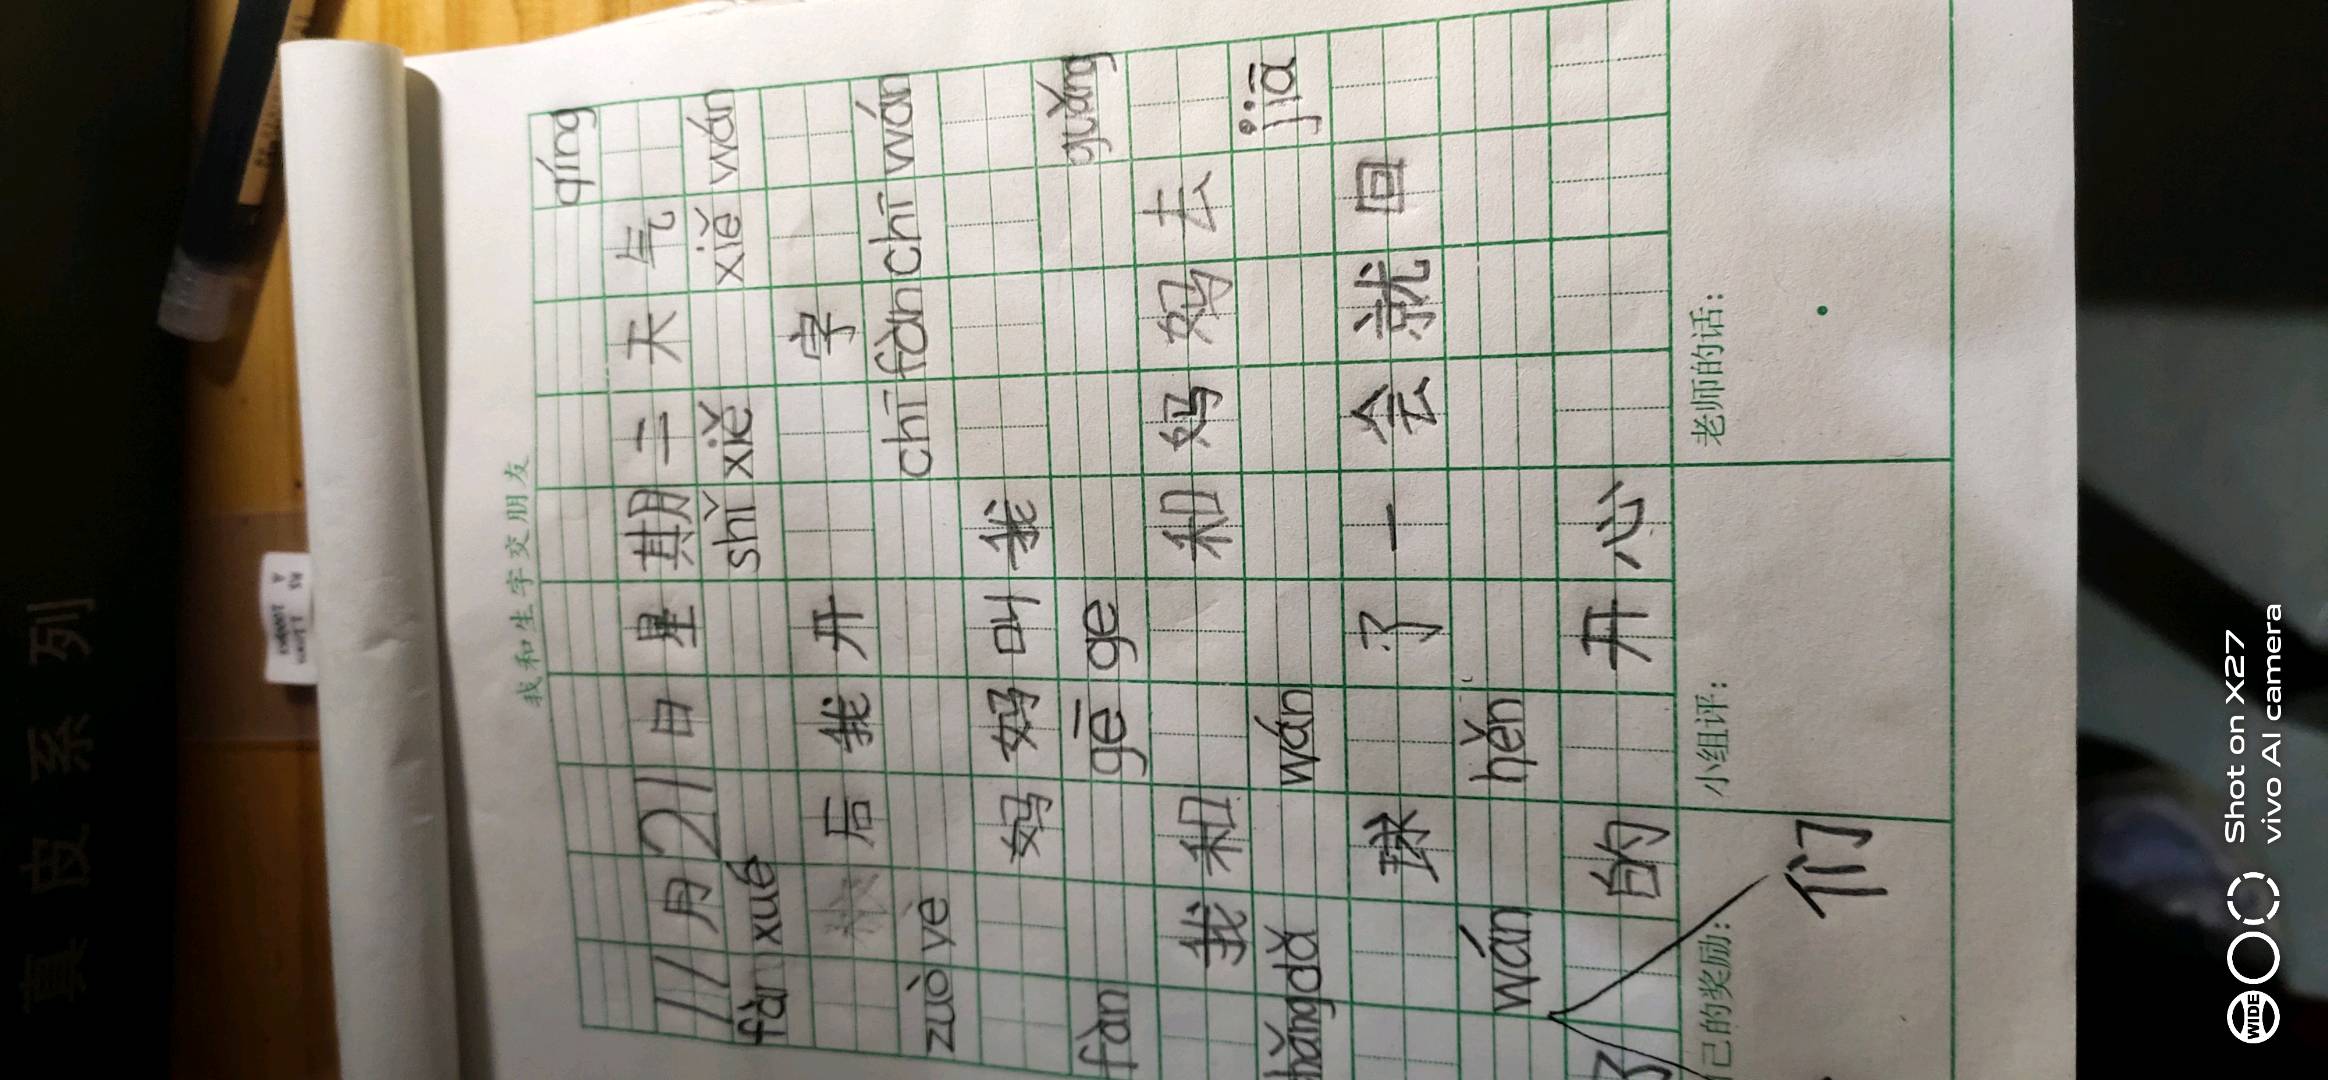 真皮系列
我和生字交朋友
qíng
11月21日星期二天气
fàn xué shǐ xiě xiě wán
后我开字
zuò yè chī fàn chī wán
妈妈叫我
fàn gē ge guǎng
我和和妈妈去
hǎng dǎ wán jiā
球了一会就回
wán hěn
了的开心
们
己的奖励: 小组评: 老师的话:
WIDE
Shot on X27
vivo AI camera